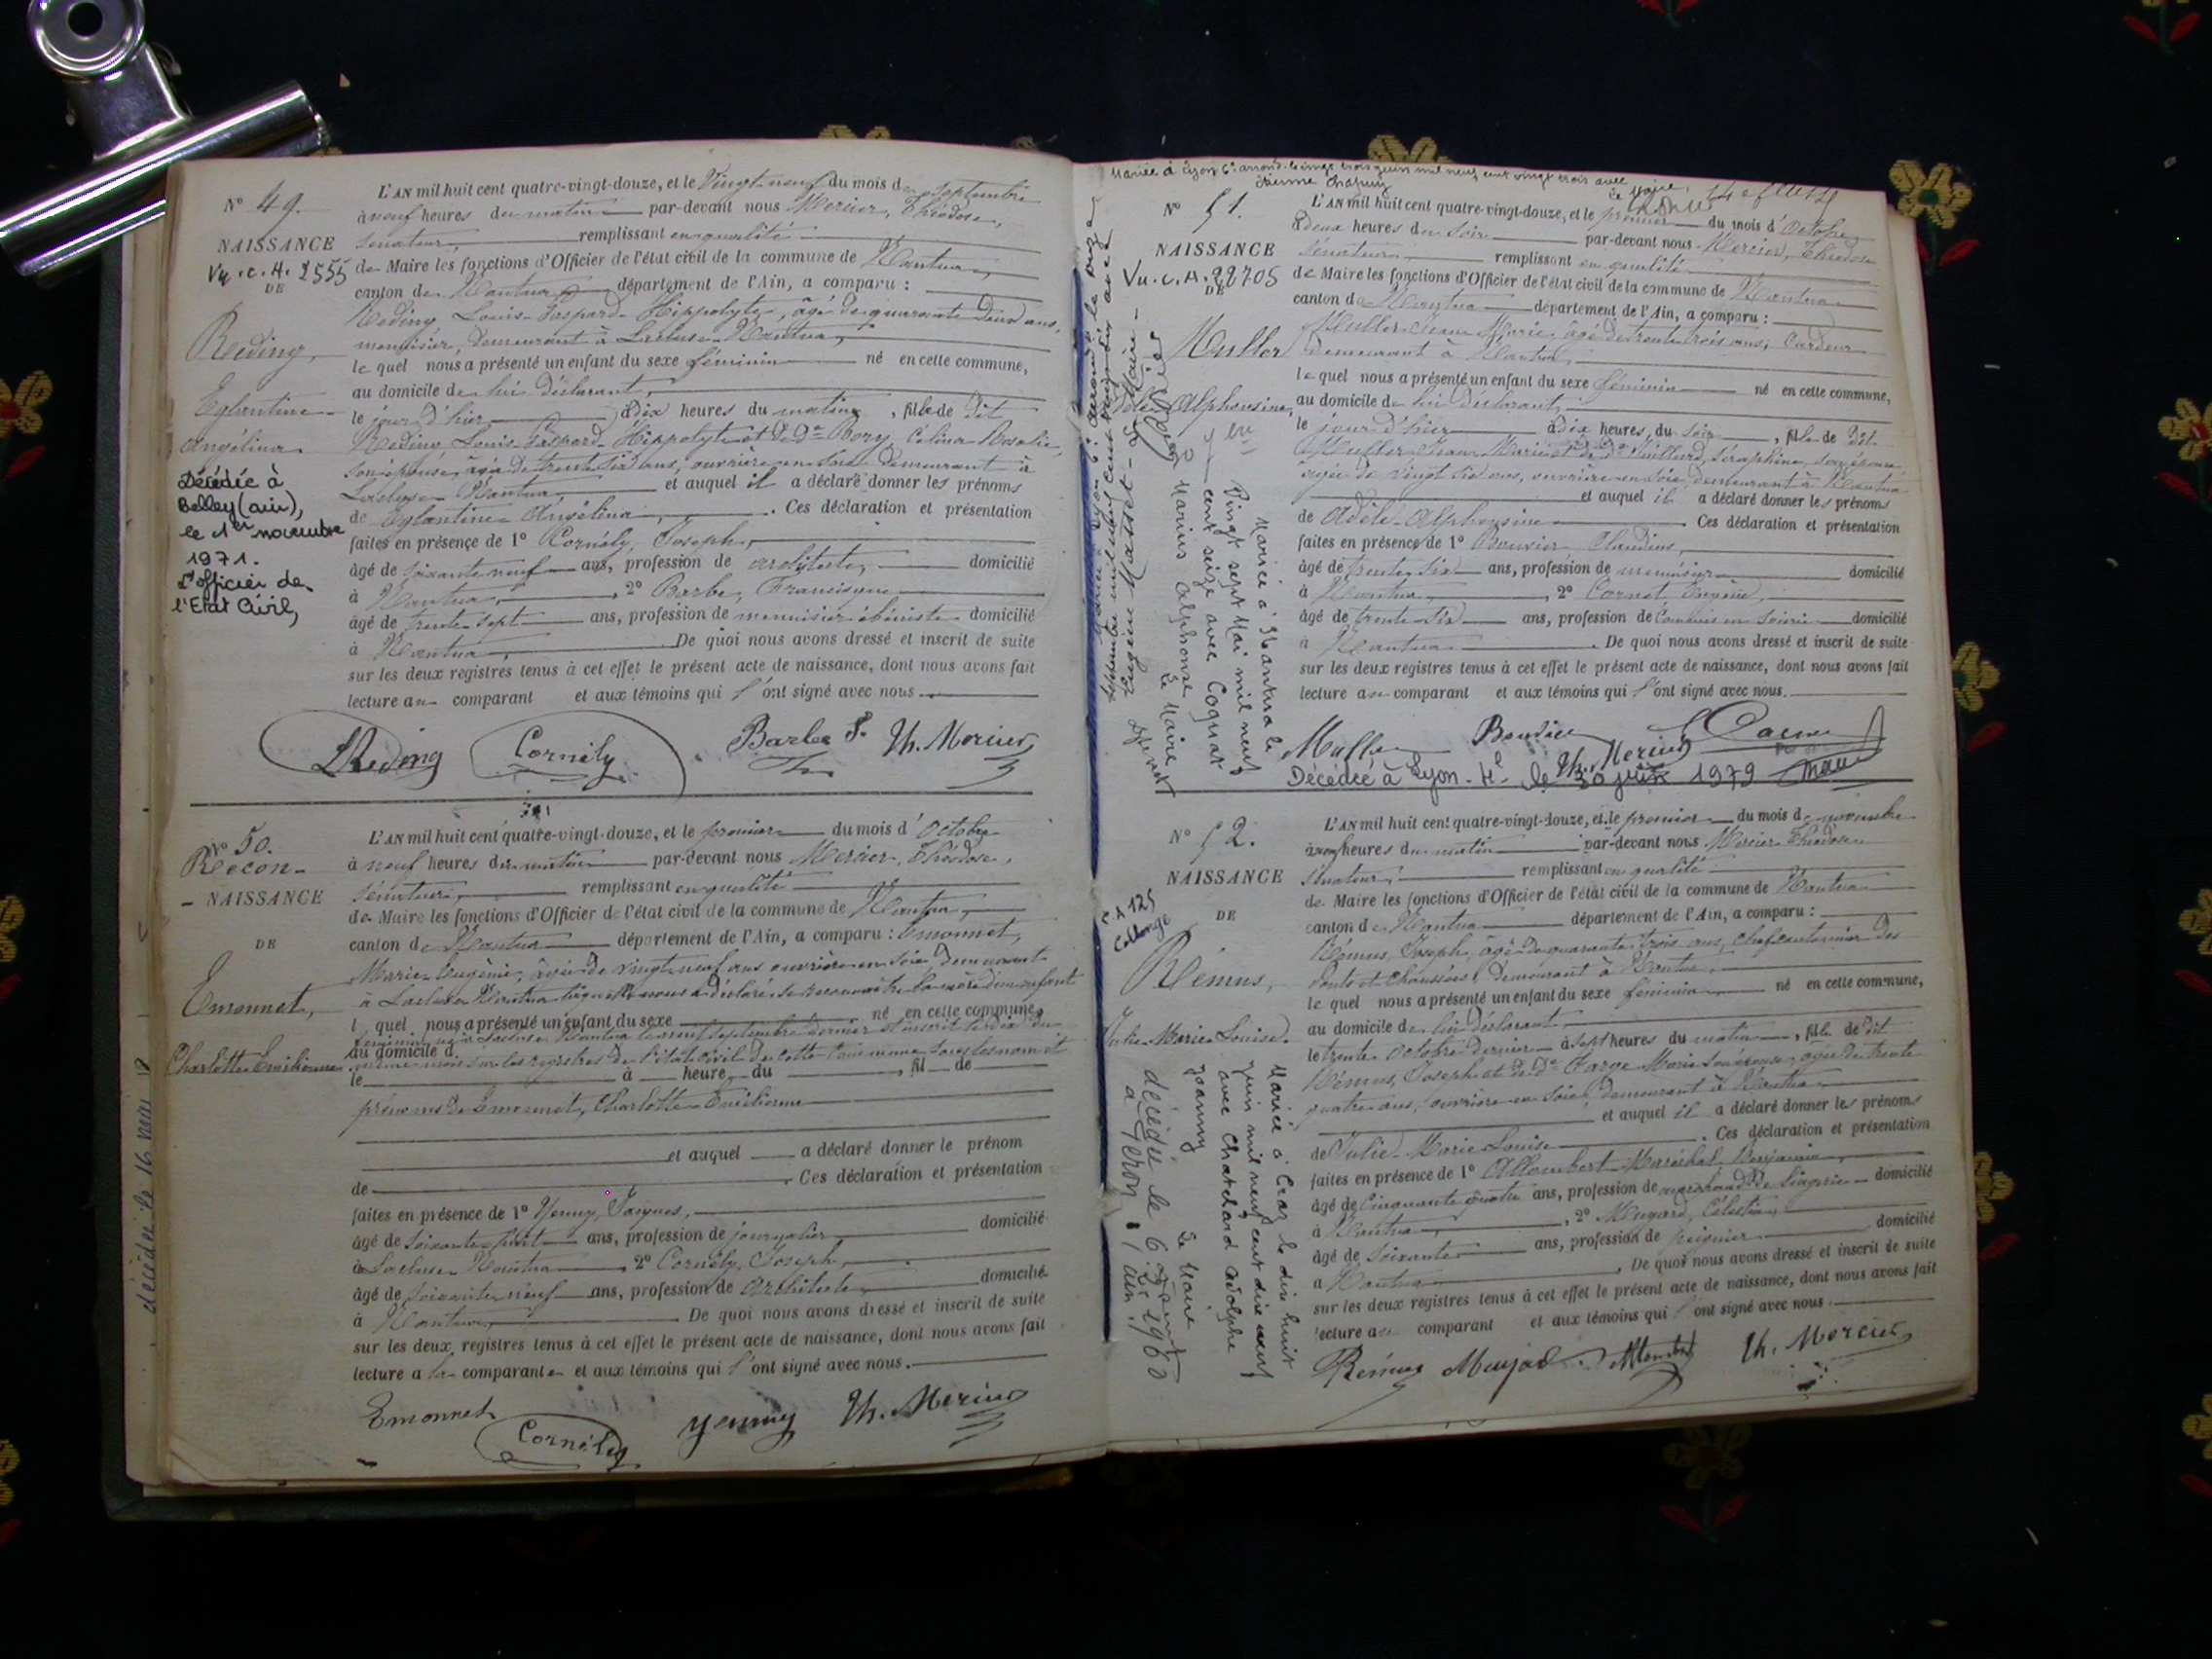 N° 49.
NAISSANCE
Vu. c. A. 2555
DE
Reding,
Eglantine
Angélina
Décédée à
Belley (ain),
le 1er novembre
1971.
L'officier de
l'Etat Civil,
L'AN mil huit cent quatre-vingt-douze, et le Vingt-neuf du mois de septembre
à neuf heures du matin par-devant nous Mercier, Théodose,
sénateur, remplissant en qualité
de Maire les fonctions d'Officier de l'état civil de la commune de Nantua,
canton de Nantua département de l'Ain, a comparu :
Reding Louis-Gaspard-Hippolyte, âgé de quarante deux ans,
menuisier, demeurant à Lacluse-Nantua,
lequel nous a présenté un enfant du sexe féminin né en cette commune,
au domicile de lui déclarant,
le jour d'hier à dix heures du matin, fille de dit
Reding Louis-Gaspard-Hippolyte et de De Bory Célina Rosalie,
son épouse, âgée de trente six ans, ouvrière en soie demeurant à
Lacluse-Nantua et auquel il a déclaré donner les prénoms
de Eglantine Angélina, . Ces déclaration et présentation
faites en présence de 1° Cornély, Joseph,
âgé de soixante neuf ans, profession de architecte, domicilié
à Nantua, , 2° Barbe, Francisque
âgé de trente-sept ans, profession de menuisier ébéniste domicilié
à Nantua, De quoi nous avons dressé et inscrit de suite
sur les deux registres tenus à cet effet le présent acte de naissance, dont nous avons fait
lecture au comparant et aux témoins qui l'ont signé avec nous.
LReding Cornély Barbe F. Th. Mercier
N° 50.
Recon-
- NAISSANCE
DE
Emonnet,
Charlotte Emilienne
L'AN mil huit cent quatre-vingt-douze, et le premier du mois d'Octobre
à neuf heures du matin par-devant nous Mercier, Théodose,
sénateur, remplissant en qualité
de Maire les fonctions d'Officier de l'état civil de la commune de Nantua,
canton de Nantua département de l'Ain, a comparu : Emonnet,
Marie-Eugénie, âgée de vingt neuf ans ouvrière en soie demeurant
à Lacluse Nantua laquelle nous a déclaré se reconnaître la mère d'un enfant
l quel nous a présenté un enfant du sexe né en cette commune,
féminin né à Lacluse Nantua le neuf septembre dernier et inscrit le dix du
au domicile d
même mois sur les registres de l'état civil de cette commune sous les nom et
le à heure du , fil de
prénoms de Emonnet, Charlotte Emilienne
et auquel a déclaré donner le prénom
de . Ces déclaration et présentation
faites en présence de 1° Yenny, Jacques,
âgé de soixante huit ans, profession de journalier domicilié
à Lacluse Nantua , 2° Cornély, Joseph,
âgé de soixante neuf ans, profession de Architecte domicilié
à Nantua, De quoi nous avons dressé et inscrit de suite
sur les deux registres tenus à cet effet le présent acte de naissance, dont nous avons fait
lecture a la comparante et aux témoins qui l'ont signé avec nous.
Emonnet Cornély Yenny Th. Mercier
décédée le 16 mai
Mariée à Lyon 6e arrond. le vingt trois juin mil neuf cent vingt trois avec
Etienne Chapuy Le Maire,
N° 51.
NAISSANCE
Vu. c. A. 22705
DE
Muller
Adèle Alphonsine,
L'AN mil huit cent quatre-vingt-douze, et le premier du mois d'Octobre
à deux heures du soir par-devant nous Mercier, Théodose
sénateur, remplissant en qualité
de Maire les fonctions d'Officier de l'état civil de la commune de Nantua
canton de Nantua département de l'Ain, a comparu :
Muller Jean Marie âgé de trente trois ans, Cardeur
demeurant à Nantua,
lequel nous a présenté un enfant du sexe féminin né en cette commune,
au domicile de lui déclarant,
le jour d'hier à dix heures du soir, fille de dit
Muller Jean Marie et de De Vuillard, Séraphine, son épouse
âgée de vingt six ans, ouvrière en soie, demeurant à Nantua
et auquel il a déclaré donner les prénoms
de Adèle-Alphonsine . Ces déclaration et présentation
faites en présence de 1° Bouvier Claudius,
âgé de trente-six ans, profession de menuisier domicilié
à Nantua, , 2° Cornet Eugène,
âgé de trente six ans, profession de Commis en soierie domicilié
à Nantua . De quoi nous avons dressé et inscrit de suite
sur les deux registres tenus à cet effet le présent acte de naissance, dont nous avons fait
lecture au comparant et aux témoins qui l'ont signé avec nous.
Muller Bouvier Th. Mercier
Décédée à Lyon - 4e le 30 juin 1979
Mariée à Nantua le
Vingt sept Mai mil neuf
cent seize avec Coquat
Marius Alphonse
Le Maire
Mariée à Lyon 6e arrond. le onze
septembre mil neuf cent vingt six avec
Eugène Massot - Le Maire -
N° 52.
NAISSANCE
DE
Rémus,
Julie-Marie-Louise.
L'AN mil huit cent quatre-vingt-douze, et le premier du mois de novembre
à onze heures du matin par-devant nous Mercier Théodose
sénateur, remplissant en qualité
de Maire les fonctions d'Officier de l'état civil de la commune de Nantua
canton de Nantua département de l'Ain, a comparu :
Rémus, Joseph, âgé de quarante trois ans, chef cantonnier des
Ponts et chaussées, demeurant à Nantua,
lequel nous a présenté un enfant du sexe féminin né en cette commune,
au domicile de lui déclarant,
le trente Octobre dernier à sept heures du matin, fille de dit
Rémus, Joseph et de De Farge Marie son épouse, âgée de trente
quatre ans, ouvrière en soie, demeurant à Nantua
et auquel il a déclaré donner les prénoms
de Julie-Marie Louise . Ces déclaration et présentation
faites en présence de 1° Allombert-Maréchal Benjamin,
âgé de Cinquante quatre ans, profession de marchand de lingerie domicilié
à Nantua, , 2° Mugard, Célestin,
âgé de Soixante ans, profession de peignier domicilié
à Nantua . De quoi nous avons dressé et inscrit de suite
sur les deux registres tenus à cet effet le présent acte de naissance, dont nous avons fait
lecture au comparant et aux témoins qui l'ont signé avec nous.
Rémus Th. Mercier
Mariée à Craz le dix huit
juin mil neuf cent dix neuf
avec Chatelard Adolphe
Joanny Le Maire
décédée le 6 août 1960
à Peron (Ain)